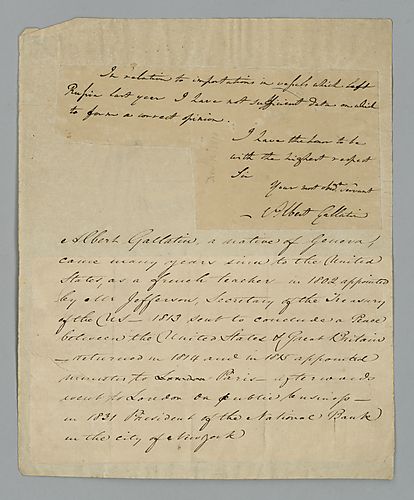 In relation to importations in vessels which left
Russia last year I have not sufficient data on which
to form a correct opinion.
I have the honor to be
with the highest respect
Sir
Your most obdt. servant
Albert Gallatin
Albert Gallatin, a native of Geneva,
came many years since to the United
States, as a french teacher in 1802 appointed
by Mr Jefferson, Secretary of the Treasury
of the US — 1813 sent to conclude a Peace
between the United States & Great Britain
— returned in 1814 and in 1815 appointed
minister to London Paris afterwards
went to London on public business —
in 1831 President of the National Bank
in the city of New York